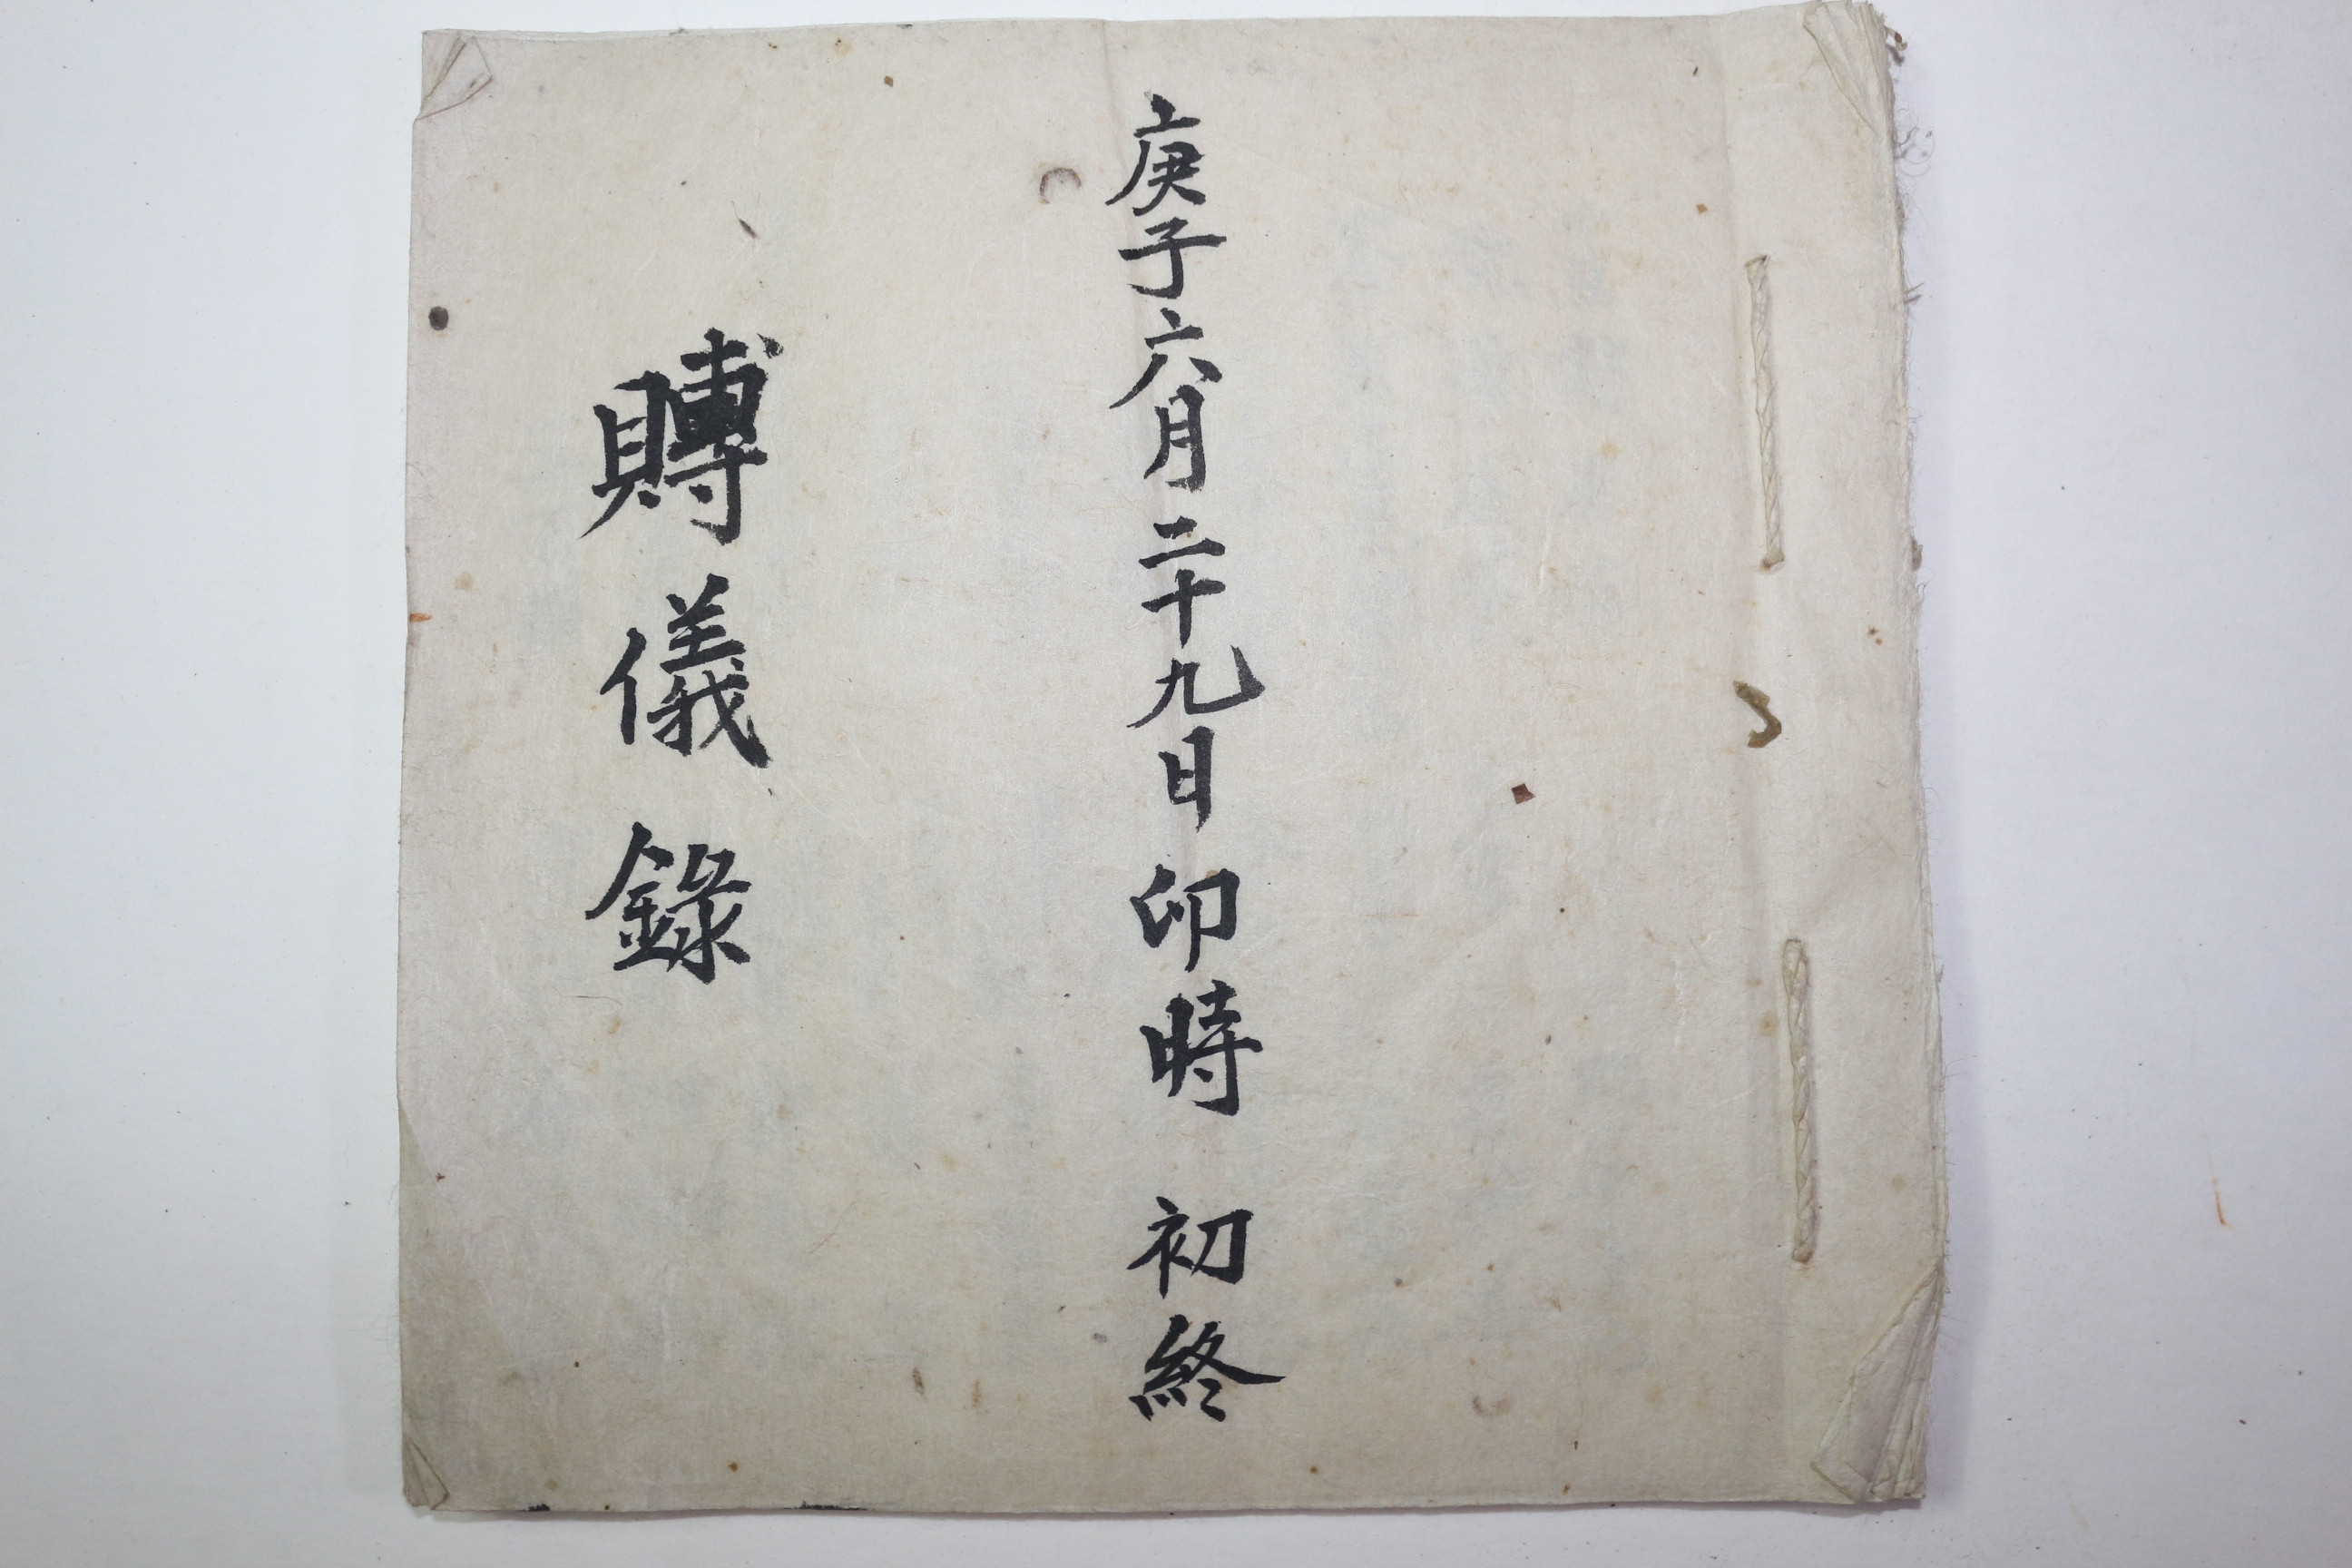 庚子六月二十九日卯時 初終
賻儀錄